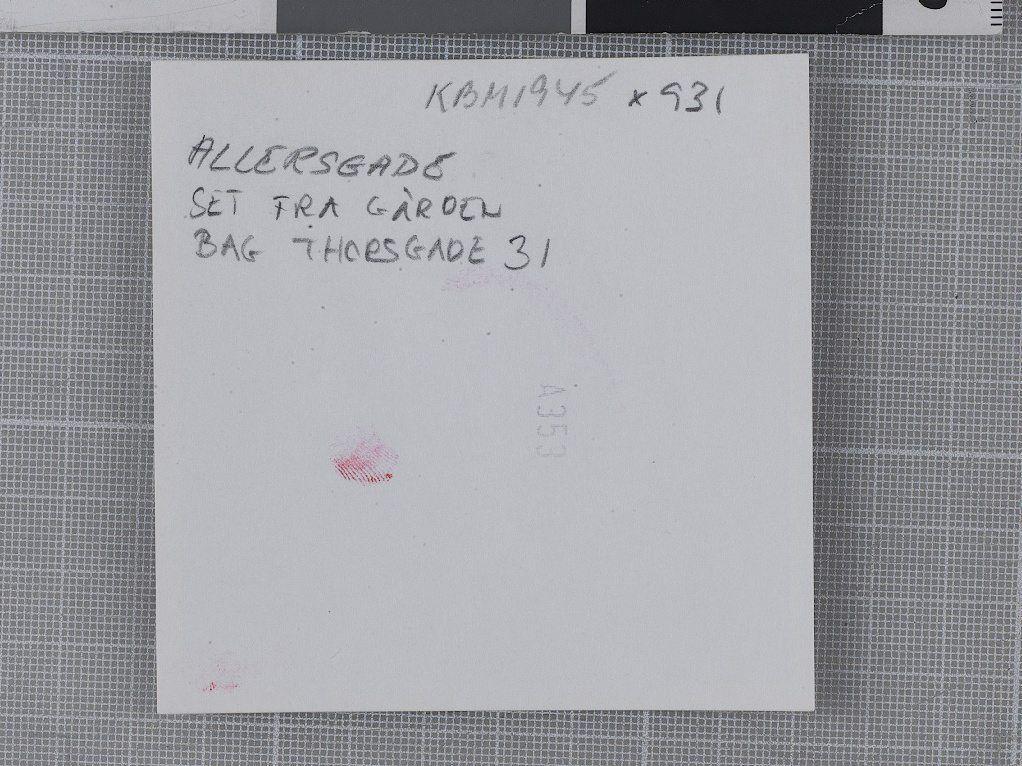 KBM1945 x 931
ALLERSGADE
SET FRA GÅRDEN
BAG THORSGADE 31
A353